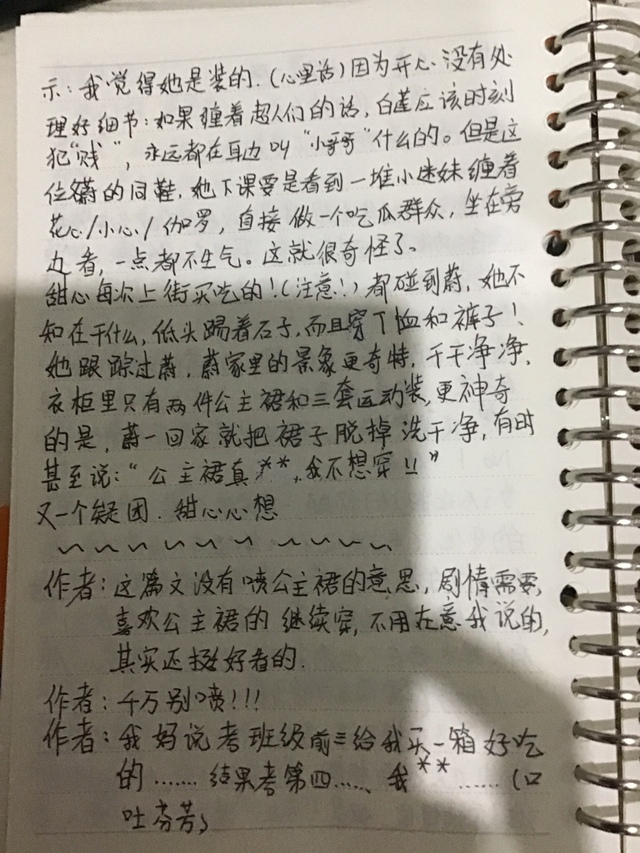 示：我觉得她是装的.（心里话）因为开心没有处
理好细节：如果缠着超人们的话，白莲应该时刻
犯“贱”，永远都在耳边叫“小哥哥”什么的。但是这
位蔚的同鞋，她下课要是看到一堆小迷妹缠着
花心/小心/伽罗，直接做一个吃瓜群众，坐在旁
边看，一点都不生气。这就很奇怪了。
甜心每次上街买吃的！（注意！）都碰到蔚，她不
知在干什么，低头踢着石子，而且穿T恤和裤子！
她跟踪过蔚，蔚家里的景象更奇特，干干净净，
衣柜里只有两件公主裙和三套运动装，更神奇
的是，蔚一回家就把裙子脱掉洗干净，有时
甚至说：“公主裙真**，我不想穿！！”
又一个疑团．甜心心想
～～～～～～～～～～
作者：这篇文没有喷公主裙的意思，剧情需要，
喜欢公主裙的继续穿，不用在意我说的，
其实还挺好看的．
作者：千万别喷！！！
作者：我妈说考班级前三给我买一箱好吃
的……结果考第四……我**……（口
吐芬芳）